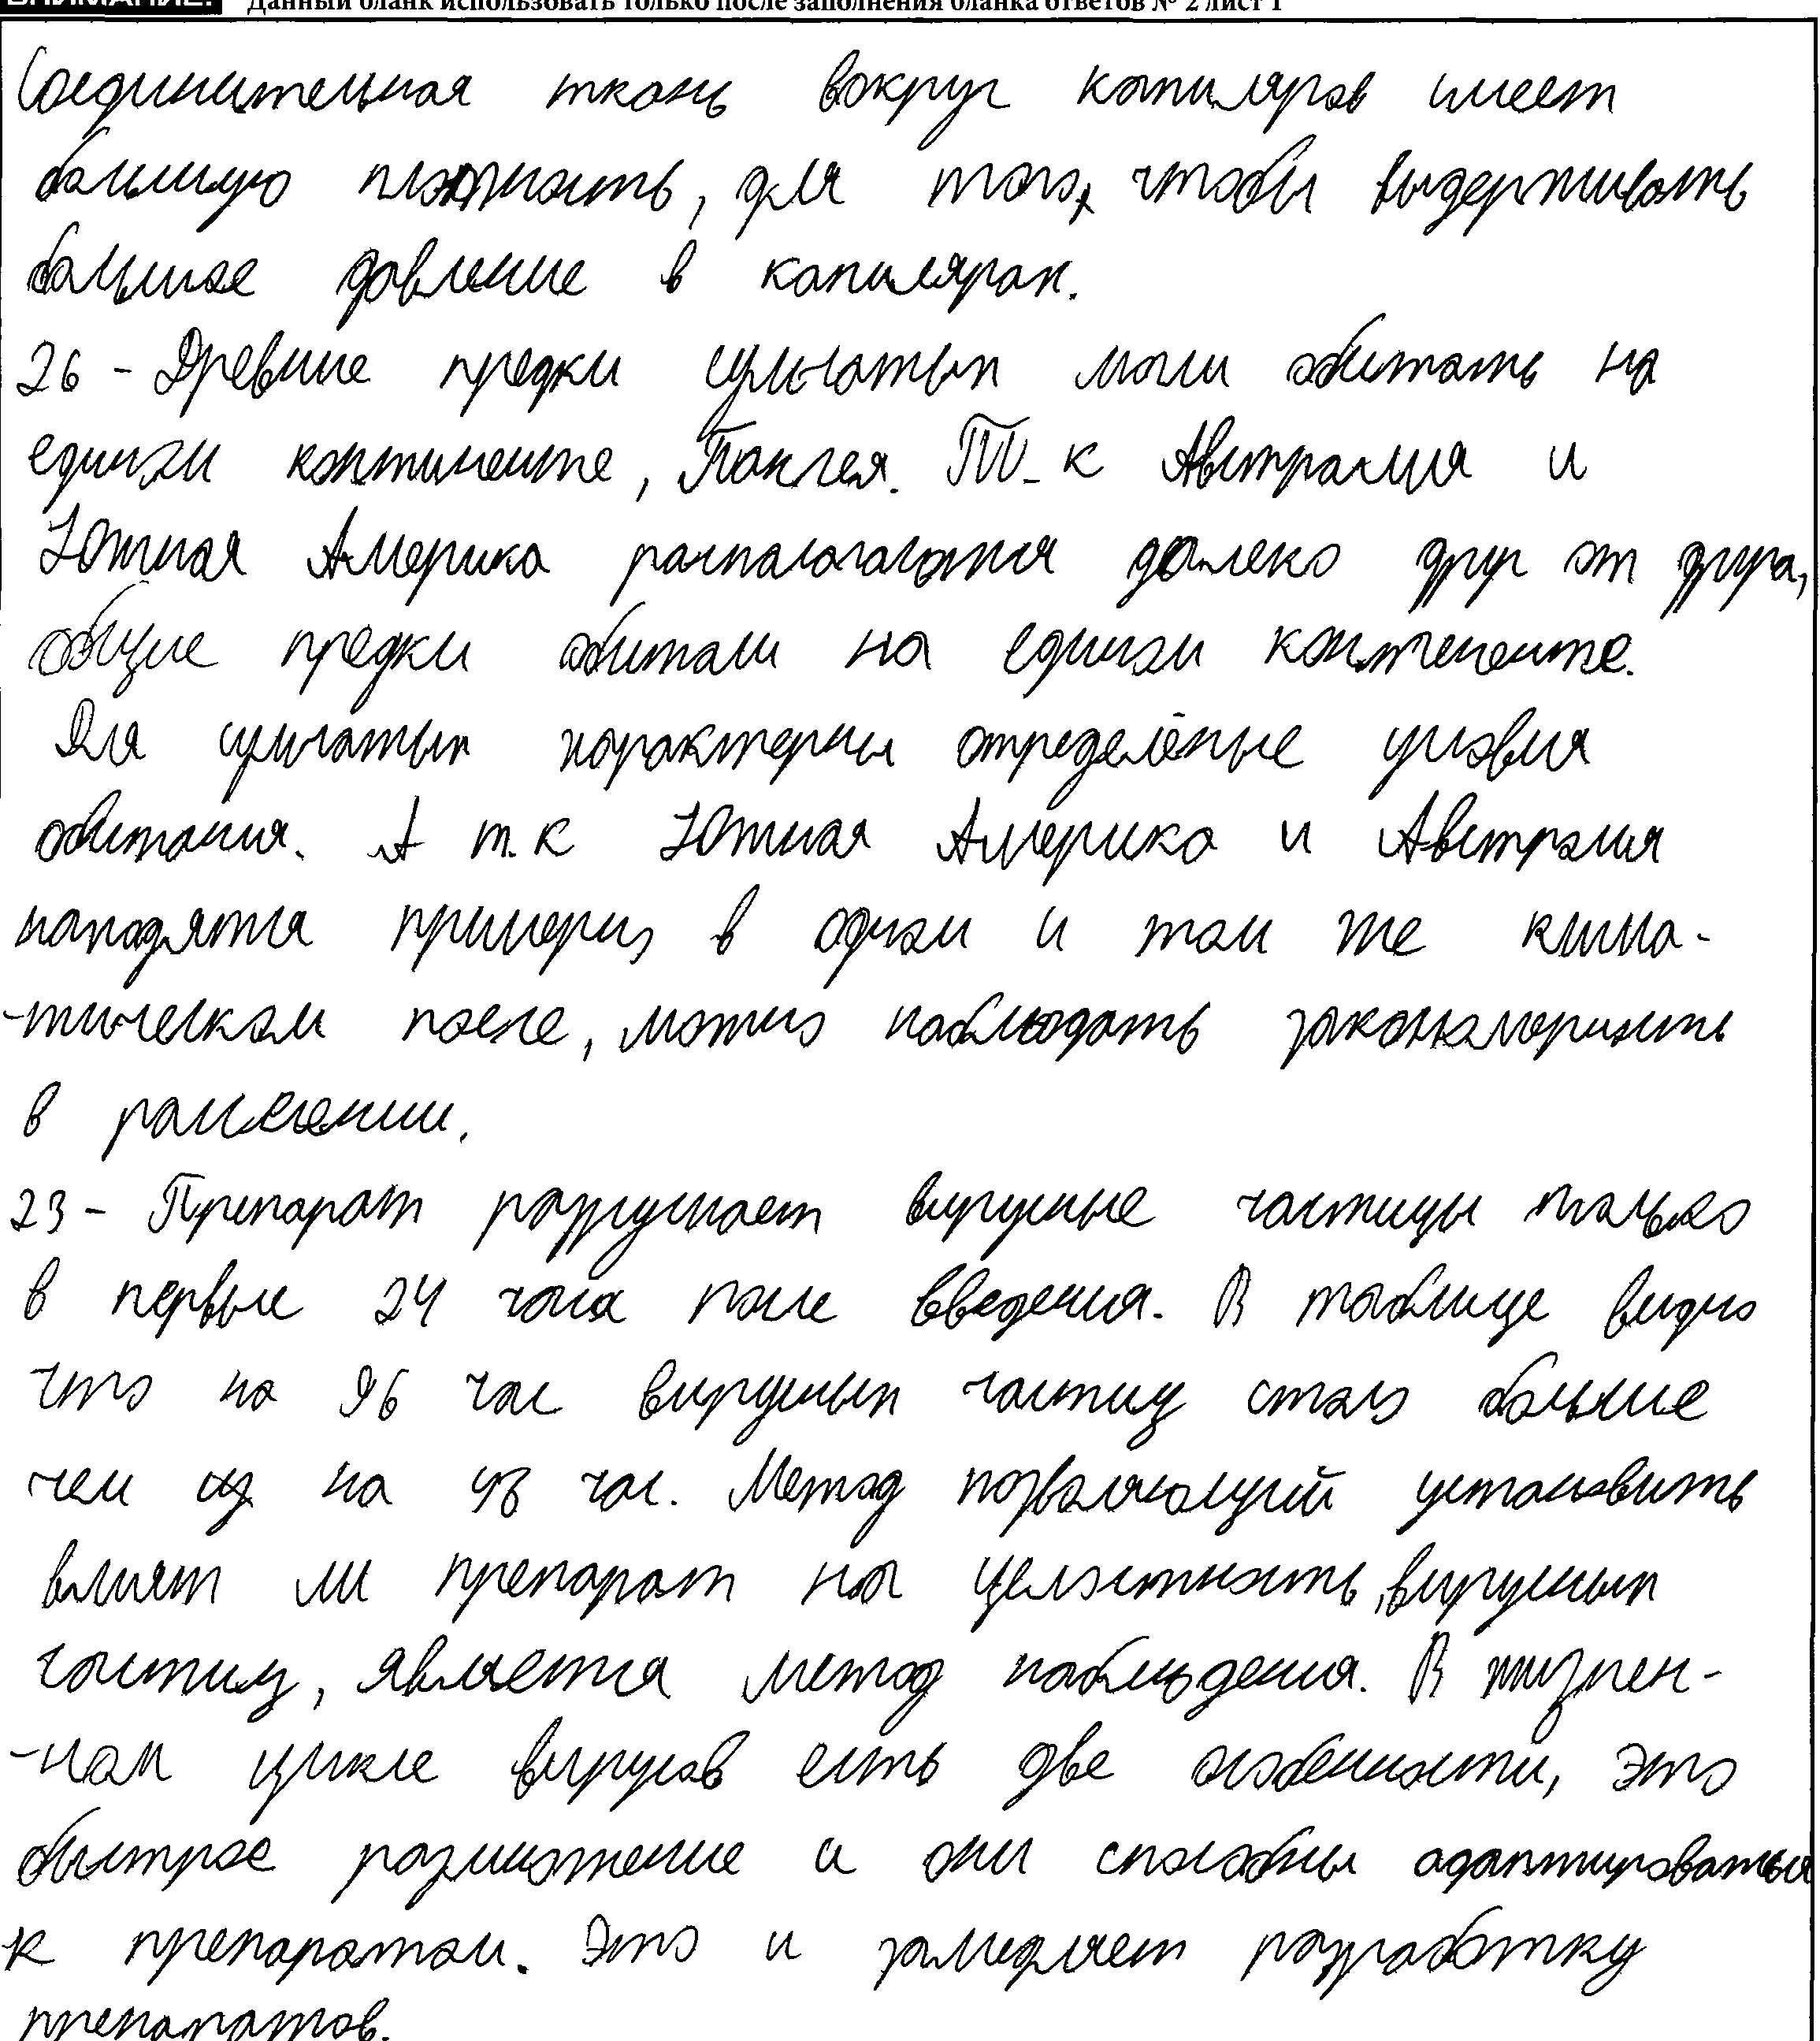 ВНИМАНИЕ! Данный бланк использовать только после заполнения бланка ответов № 2 лист 1
Соединительная ткань вокруг капиляров имеет
большую плотность, для того, чтобы выдерживать
большое давление в капилярах.
26 - Древние предки сумчатых могли обитать на
едином континенте, Пангея. Т.к Австралия и
Южная Америка располагаются далеко друг от друга,
общие предки обитали на едином континенте.
Для сумчатых характерны определёные условия
обитания. А т.к Южная Америка и Австралия
находятся примерно в одном и том же клима-
-тическом поясе, можно наблюдать закономерность
в расселении.
23 - Препарат разрушает вирусные частицы только
в первые 24 часа после введения. В таблице видно
что на 96 час вирусных частиц стало больше
чем их на 48 час. Метод позволяющий установить
влияет ли препарат на целостность вирусных
частиц, является метод наблюдения. В жизнен-
-ном цикле вирусов есть две особенности, это
быстрое размножение и они способны адаптироваться
к препаратам. Это и замедляет разработку
препаратов.